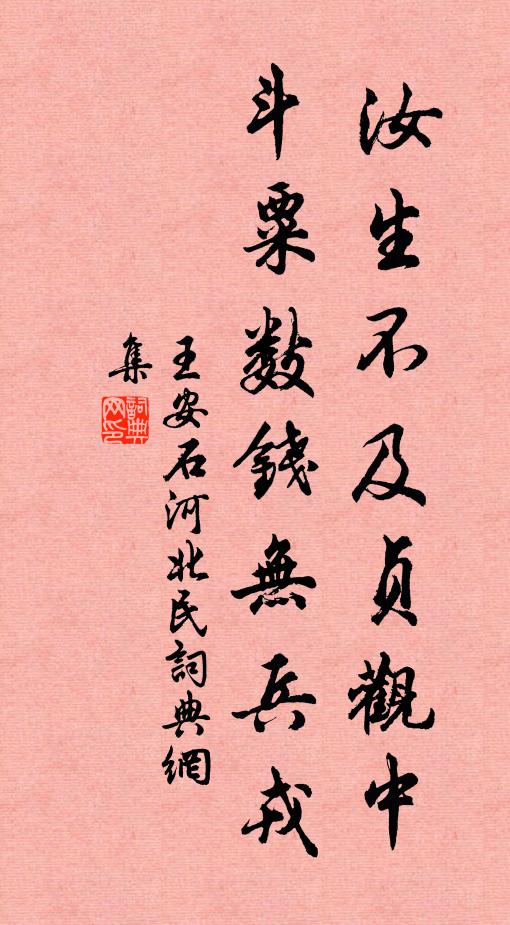 汝生不及貞觀中
斗粟數錢無兵戎
王安石河北民詞典網
集
詞典网印